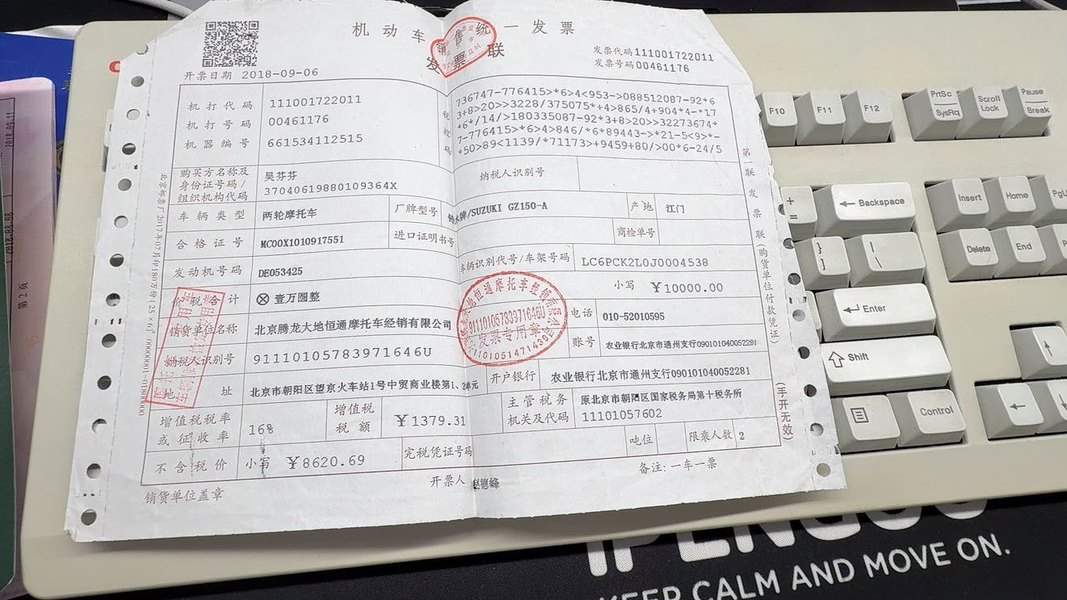 机动车销售统一发票
发票联
发票代码 111001722011
发票号码 00461176
开票日期 2018-09-06
机打代码 111001722011
机打号码 00461176
机器编号 661534112515
税控码
736747-776415>*6>4<953->088512087-92*6
3+8>20>>3228/375075*+4>865/4+904*-4-+
*6*/14/>180335087-92*3+8>20>>32273674*
7-776415>*6>4>846/*6*89443->*21-5<9>+-
*50>89<1139/*71173>+9459+80/>00*6-24/5
购买方名称及身份证号码/组织机构代码
吴芬芬
37040619880109364X
纳税人识别号
车辆类型 两轮摩托车 厂牌型号 铃木牌/SUZUKI GZ150-A 产地 江门
合格证号 MC00X1010917551 进口证明书号 商检单号
发动机号码 DE053425 车辆识别代号/车架号码 LC6PCK2L0J0004538
价税合计 ⊗ 壹万圆整 小写 ￥10000.00
销货单位名称 北京腾龙大地恒通摩托车经销有限公司 电话 010-52010595
纳税人识别号 91110105783971646U 账号 农业银行北京市通州支行090101040052281
地址 北京市朝阳区望京火车站1号中贸商业楼第1、2单元 开户银行 农业银行北京市通州支行090101040052281
增值税税率或征收率 16% 增值税税额 ￥1379.31 主管税务机关及代码 原北京市朝阳区国家税务局第十税务所 11101057602
不含税价 小写 ￥8620.69 完税凭证号码 吨位 限乘人数 2
销货单位盖章 开票人 备注：一车一票
第一联 发票联（购货单位付款凭证）
（手开无效）
91110105783971646U
发票专用章
第2页
F10
F11
F12
PrtSc
SysRq
Scroll
Lock
Pause
Break
Backspace
Insert
Home
PgU
Enter
Delete
End
Shift
Control
KEEP CALM AND MOVE ON.